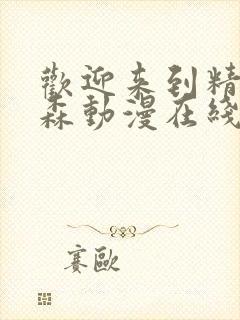 歡迎来到精
森動漫在綫
赛歐